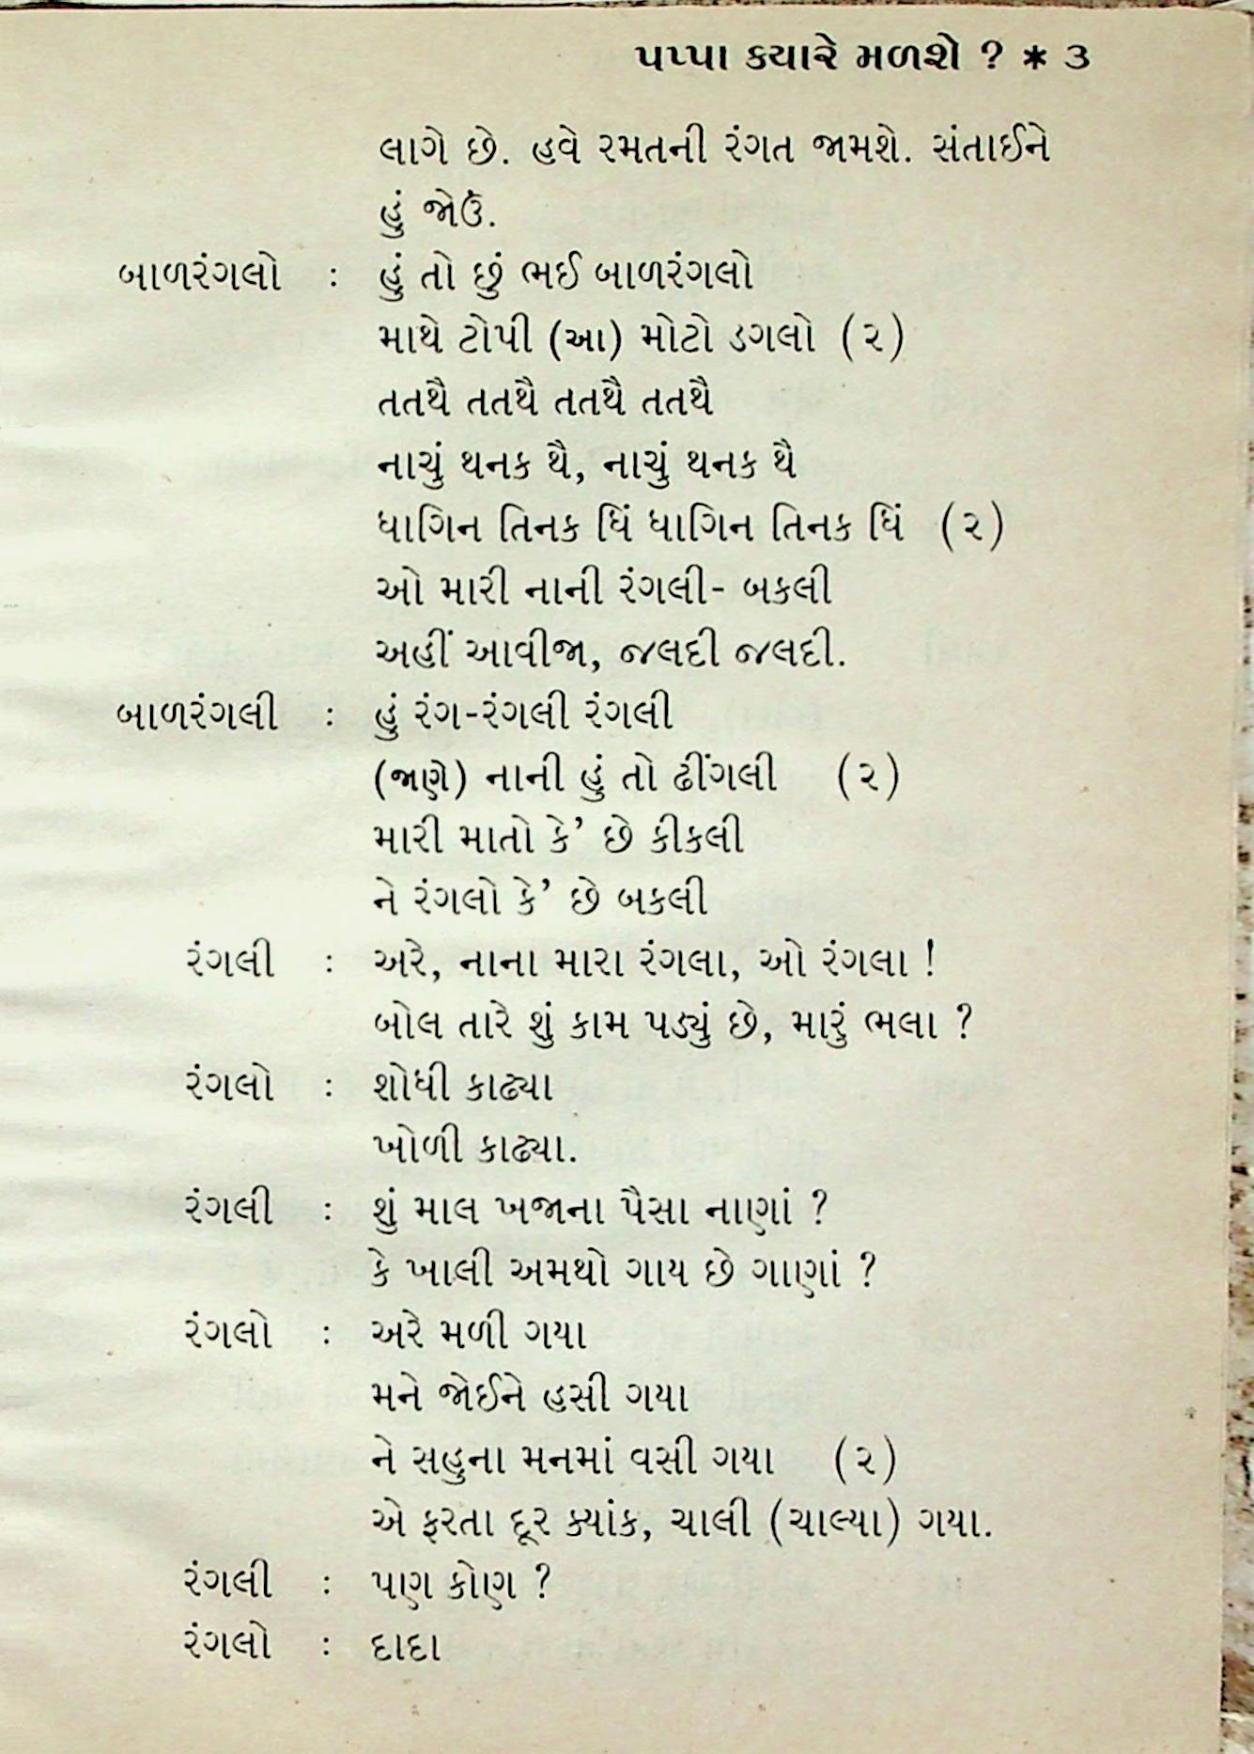 પપ્પા ક્યારે મળશે ? * ૩
લાગે છે. હવે રમતની રંગત જામશે. સંતાઈને
હું જોઉં.
બાળરંગલો : હું તો છું ભઈ બાળરંગલો
માથે ટોપી (આ) મોટો ડગલો (૨)
તતથૈ તતથૈ તતથૈ તતથૈ
નાચું થનક થૈ, નાચું થનક થૈ
ધાગિન તિનક ધિં ધાગિન તિનક ધિં (૨)
ઓ મારી નાની રંગલી- બકલી
અહીં આવીજા, જલદી જલદી.
બાળરંગલી : હું રંગ-રંગલી રંગલી
(જાણે) નાની હું તો ઢીંગલી (૨)
મારી માતો કે’ છે કીકલી
ને રંગલો કે’ છે બકલી
રંગલી : અરે, નાના મારા રંગલા, ઓ રંગલા !
બોલ તારે શું કામ પડ્યું છે, મારું ભલા ?
રંગલો : શોધી કાઢ્યા
ખોળી કાઢ્યા.
રંગલી : શું માલ ખજાના પૈસા નાણાં ?
કે ખાલી અમથો ગાય છે ગાણાં ?
રંગલો : અરે મળી ગયા
મને જોઈને હસી ગયા
ને સહુના મનમાં વસી ગયા (૨)
એ ફરતા દૂર ક્યાંક, ચાલી (ચાલ્યા) ગયા.
રંગલી : પણ કોણ ?
રંગલો : દાદા